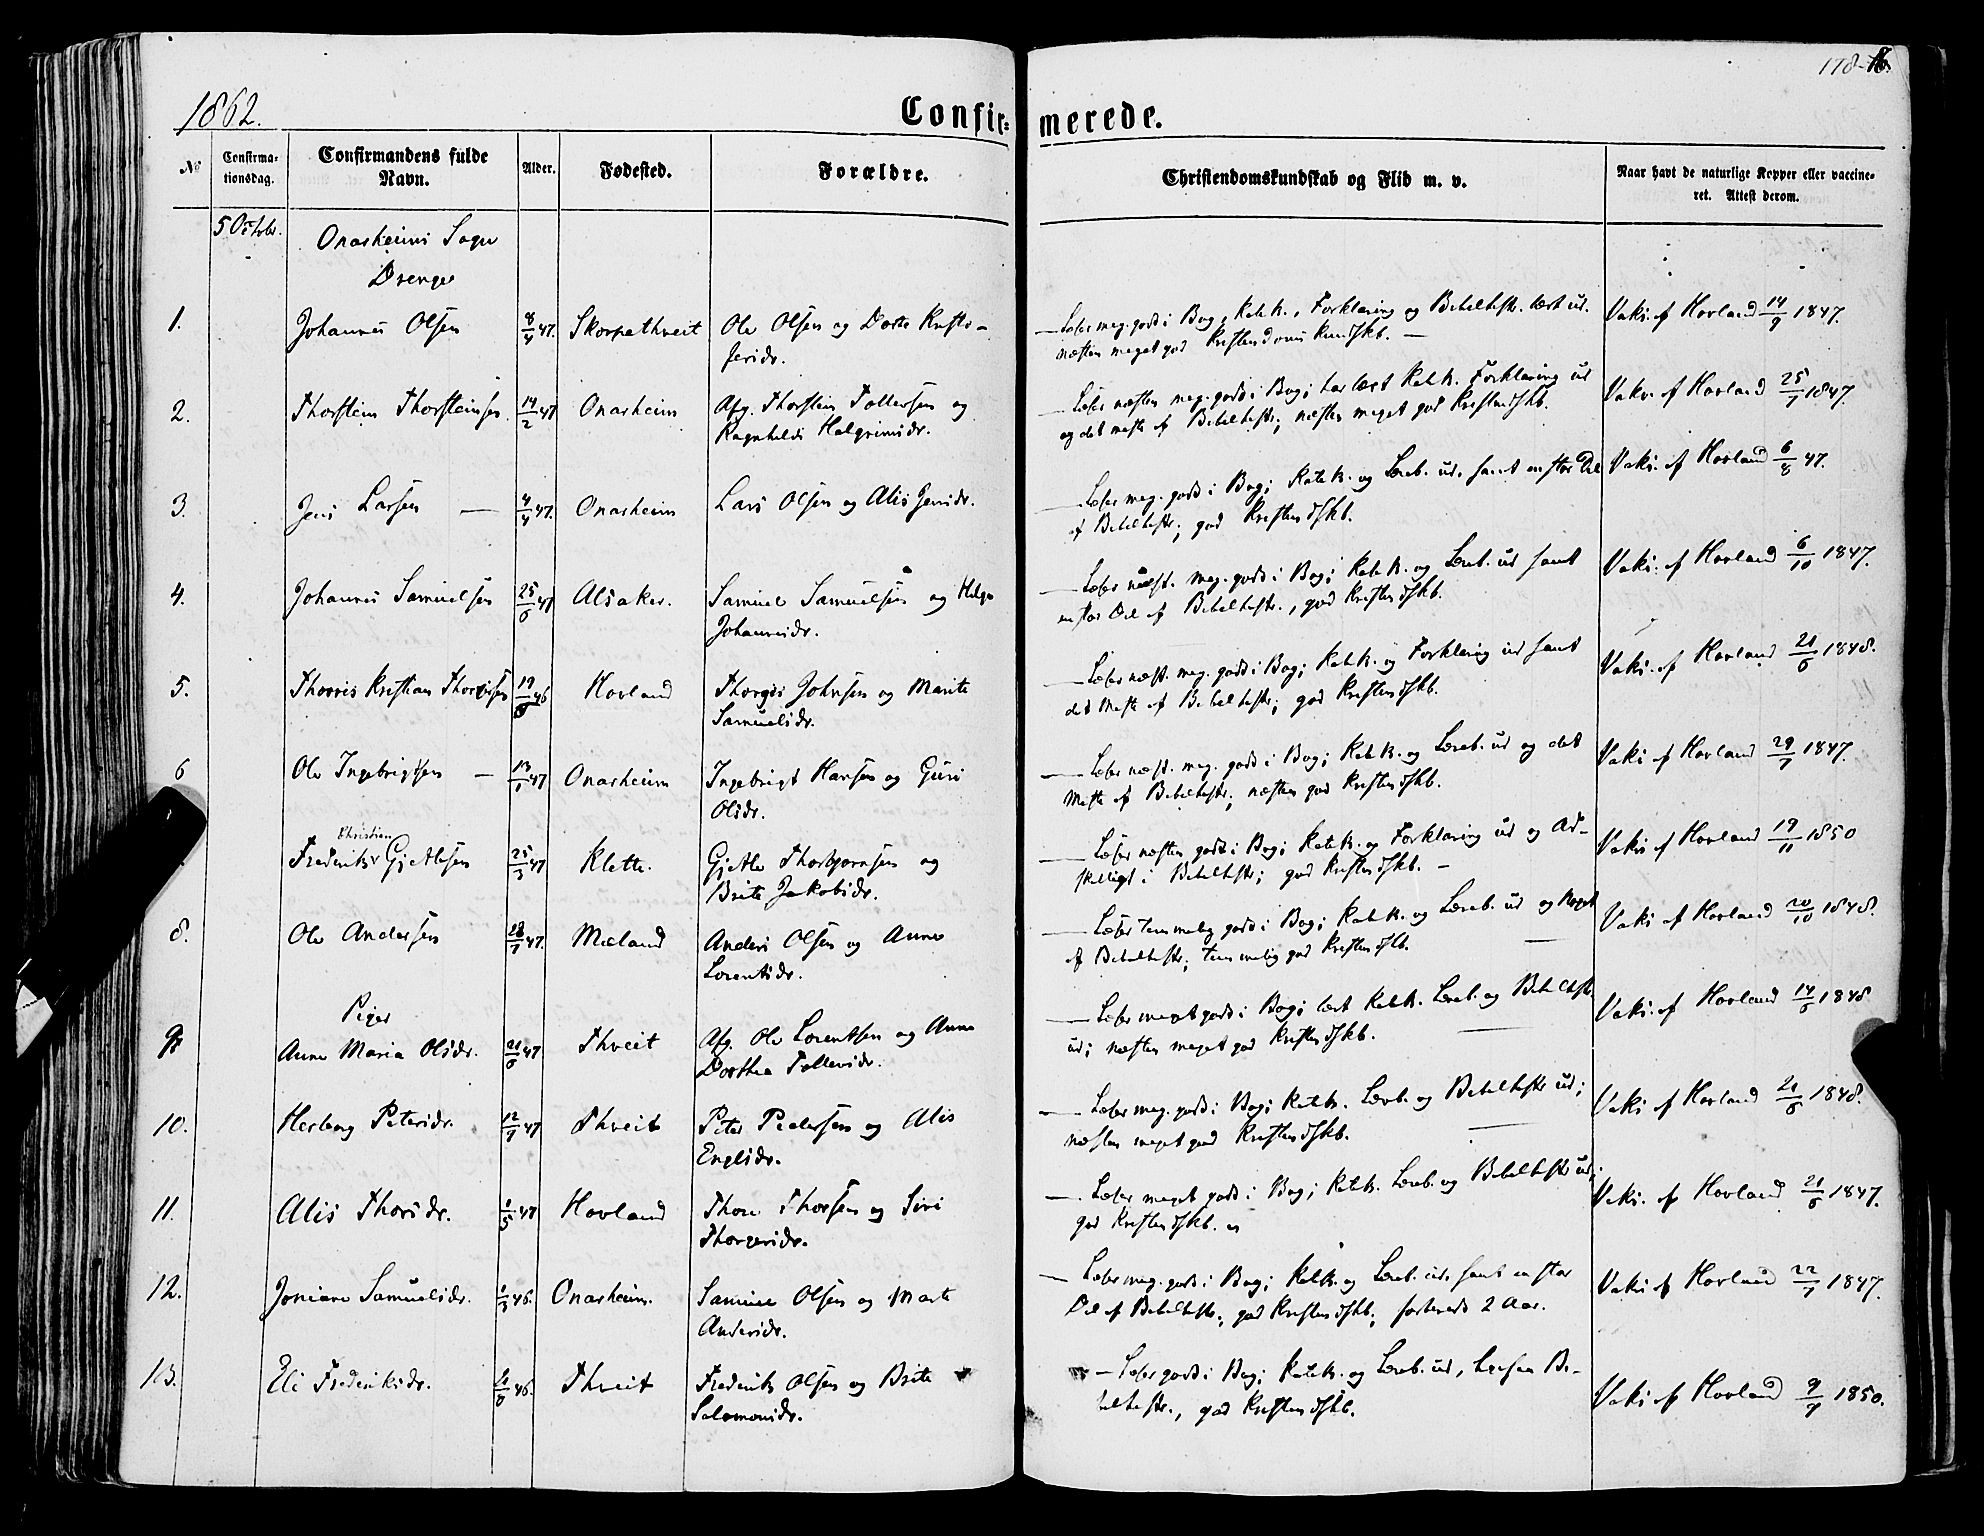 178
1862.
Confir= merede.
No
Confirma-
tionsdag.
Confirmandens fulde
Navn.
Alder.
Fødested.
Forældre.
Christendomskundskab og Flid m. v.
Naar havt de naturlige Kopper eller vaccine-
ret. Attest derom.
5 Octbr.
Onarheims Sogn
Drenge
1. Johannes Olsen 8/4 47. Skorpethveit Ole Olsen og Dorte Kristo-
fersdr.
Læser meg. godt i Bog, Katk., Forklaring og Bibelhistr. lært ud.
næsten meget god Kristendoms Kundskb. —
Vaks. af Hovland 14/9 1847.
2. Thorstein Thorsteinsen 14/2 47 Onarheim Afg. Thorstein Tollefsen og
Ragnhilds Halgrimsdr.
Læser næsten meg. godt i Bog; har lært Katk. Forklaring ud
og det meste af Bibelhistr.; næsten meget god Kristendskb.
Vaks. af Hovland 25/7 1847.
3. Jens Larsen — 4/4 47. Onarheim Lars Olsen og Alis Jensdr.
Læser meg. godt i Bog; Katk. og Læreb. ud, samt en stor Del
af Bibelhistr.; god Kristendskb.
Vaks. af Hovland 6/8 47.
4. Johannes Samuelsen 25/6 47 Alsaker. Samuel Samuelsen og Helga
Johannesdr.
Læser næst. meg. godt i Bog; Katk. og Læreb. ud samt
en stor Del af Bibelhistr., god Kristendskb.
Vaks. af Hovland 6/10 1847.
5. Kristian 19/6 46 Hovland Johnsen og Marite
Samuelsdr.
Læser næst. meg. godt i Bog; Katk. og Forklaring ud samt
det meste af Bibelhistr; god Kristendskb.
Vaks. af Hovland 21/6 1848.
6 Ole Ingebrigtsen — 13/1 47 Onarheim Ingebrigt Hansen og Guri
Olsdr.
Læser næst. meg. godt i Bog; Katk. og Læreb. ud og det
meste af Bibelhistr; næsten god Kristendskb.
Vaks af Hovland 29/7 1847.
Christian
Frederik Gjetlesen 25/3 47 Klette. Gjetle Thorbjørnsen og
Brite Jakobsdr.
Læser næsten godt i Bog; Katk. og Forklaring ud og Ad-
skilligt i Bibelhistr; god Kristendskb. —
Vaks af Hovland 19/11 1850
8. Ole Andersen 28/7 47. Mæland Anders Olsen og Anne
Lorentsdr.
Læser temmelig godt i Bog; Katk. og Læreb. ud og Noget
af Bibelhistr; temmelig god Kristendskb.
Vaks af Hovland 20/10 1848.
Piger
9 Anne Maria Olsdr. 21/6 47 Thveit Afg. Ole Lorentsen og Anne
Dorthea Tollevsdr.
Læser meget godt i Bog; lært Katk. Læreb. og Bibelhistr.
ud; næsten meget god Kristendskb.
Vaks. af Hovland 14/6 1848
10. Herborg Petersdr. 12/7 47 Thveit Peter Pedersen og Alis
Englsdr.
Læser meg. godt i Bog; Katk. Læreb. og Bibelhistr ud;
næsten meget god Kristendskb.
Vaks af Hovland 21/6 1848.
11. Alis Thorsdr. 1/5 47 Hovland Thore Thorsen og Siri
Thorgersdr.
Læser meget godt i Bog; Katk. Læreb. og Bibelhistr ud;
god Kristendskb.
Vaks. af Hovland 21/6 1847.
12. Samuelsdr. 1/3 46. Onarheim. Samuel Olsen og Marte
Andersdr.
Læser meg. godt i Bog; Katk. og Læreb. ud, samt en stor
Del af Bibelhistr., god Kristendskb; 2 Aar.
Vaks af Hovland 22/7 1847.
13. Eli Frederiksdr. 46. Thveit Frederik Olsen og Brite
Salomonsdr.
Læser godt i Bog; Katk. og Læreb. ud, Bi-
belhistr., god Kristendskb.
Vaks af Hovland 9/7 1850.